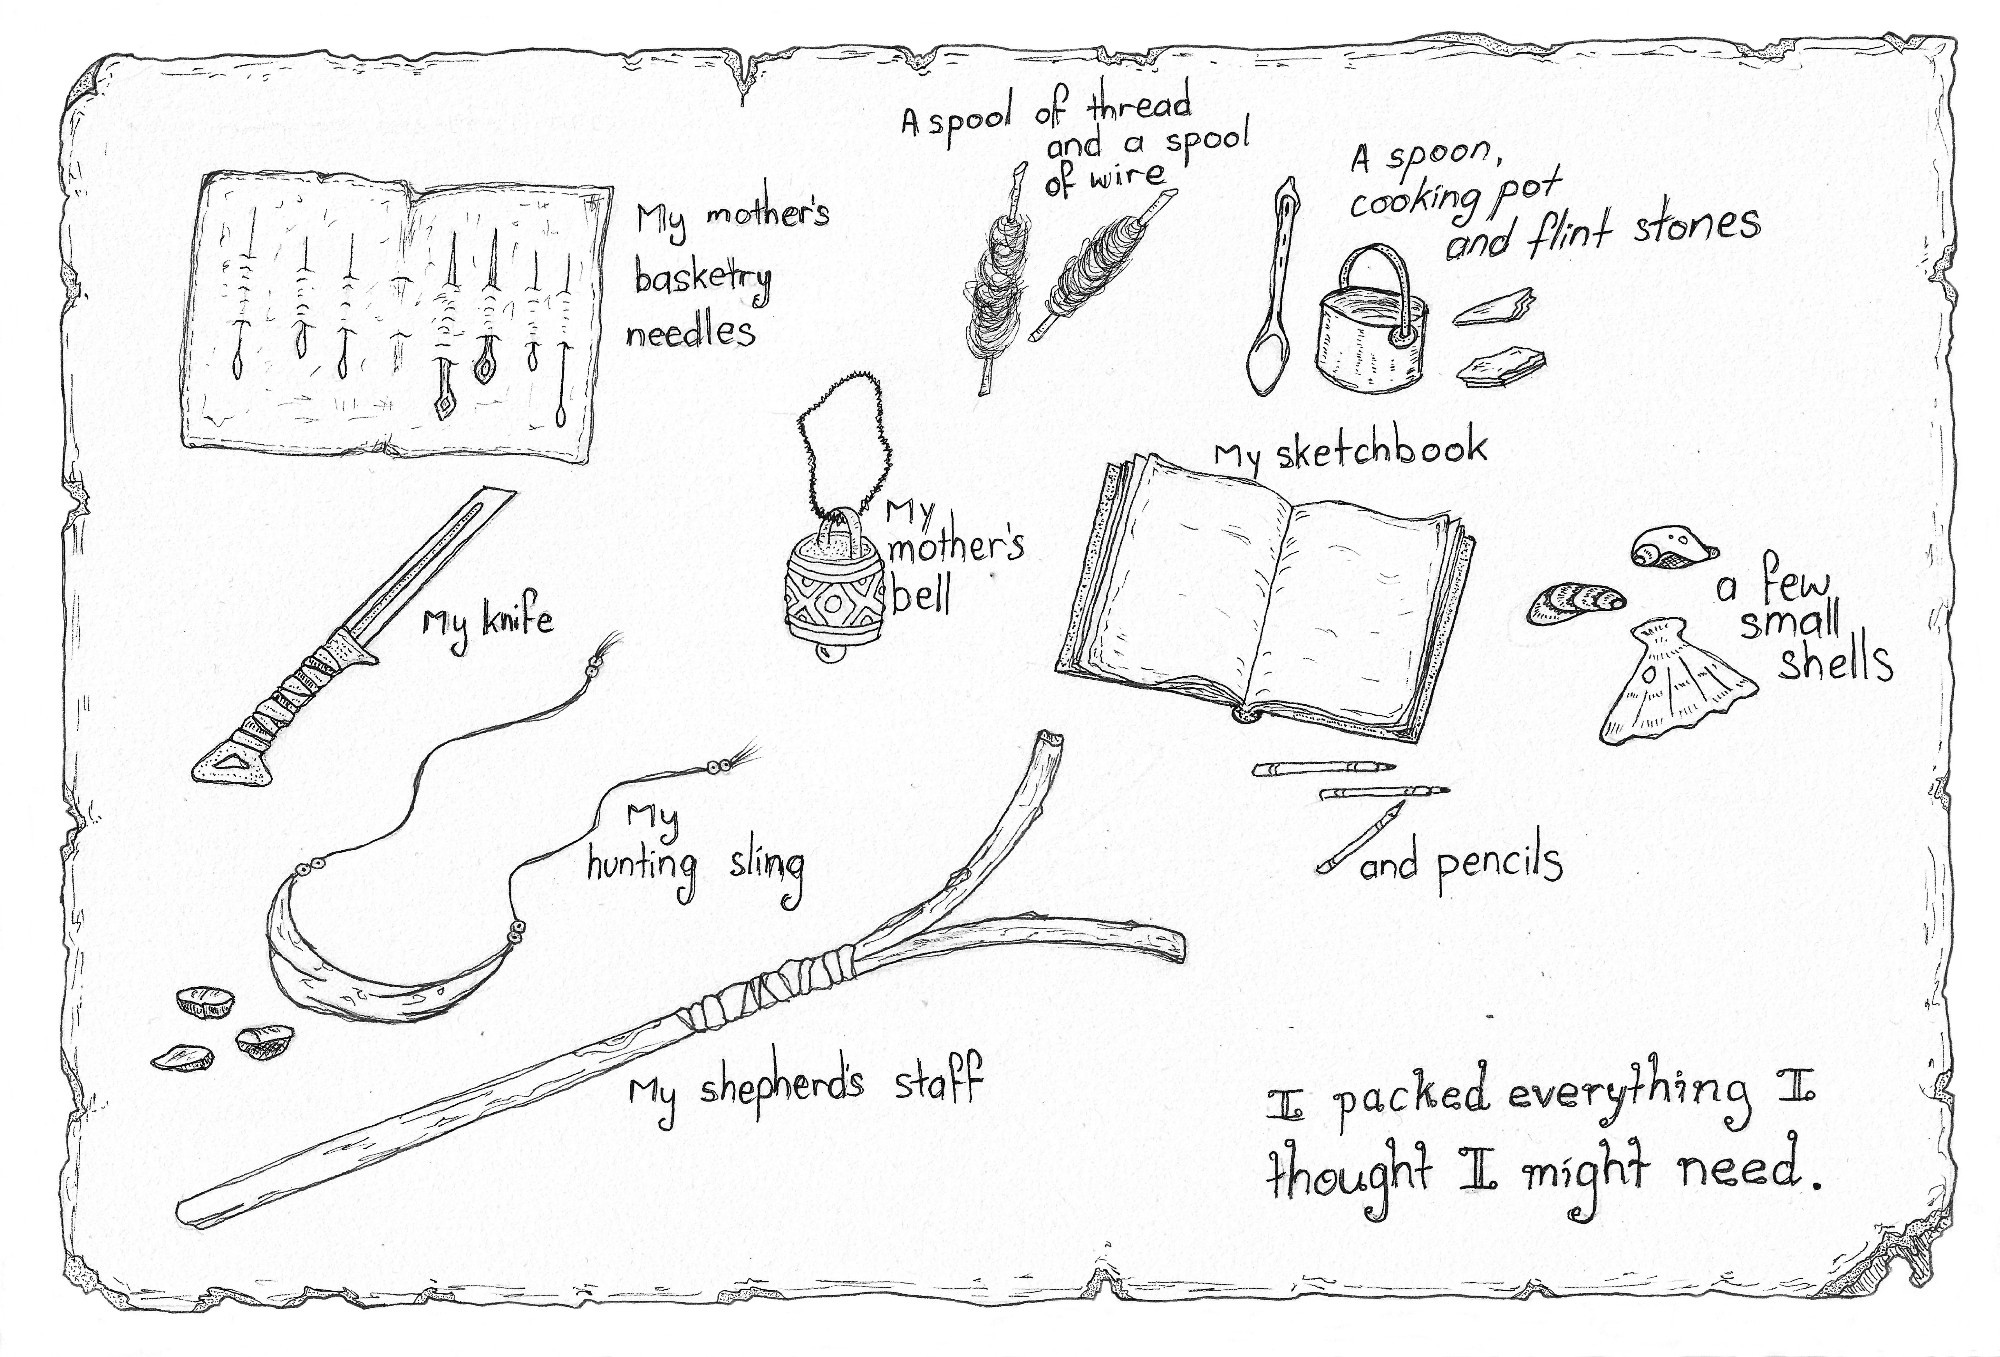 A spool of thread
and a spool
of wire
A spoon,
cooking pot
and flint stones
My mother's
basketry
needles
My sketchbook
My
mother's
bell
My knife
a few
small
shells
My
hunting sling
and pencils
My shepherd's staff
I packed everything I
thought I might need.